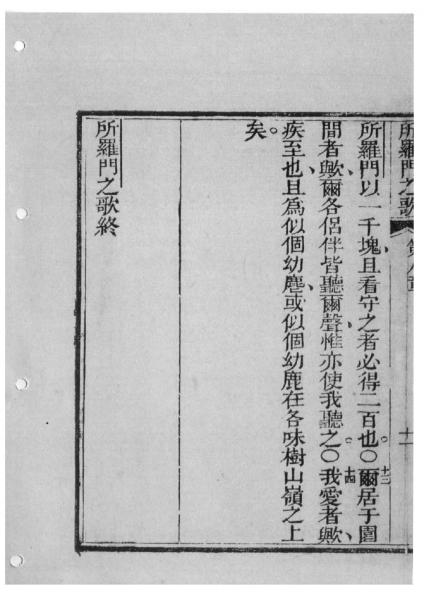 所羅門之歌 第八章 十一
所羅門以一千塊且看守之者必得二百也。〇十三爾居于園
間者歟、爾各侶伴皆聽爾聲、惟亦使我聽之。〇十四我愛者歟、
疾至也、且為似個幼麞、或似個幼鹿在各味樹山嶺之上
矣。
所羅門之歌終